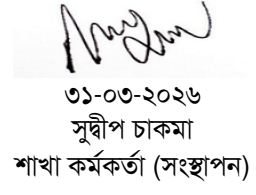 ৩১-০৩-২০২৬
সুদ্বীপ চাকমা
শাখা কর্মকর্তা (সংস্থাপন)